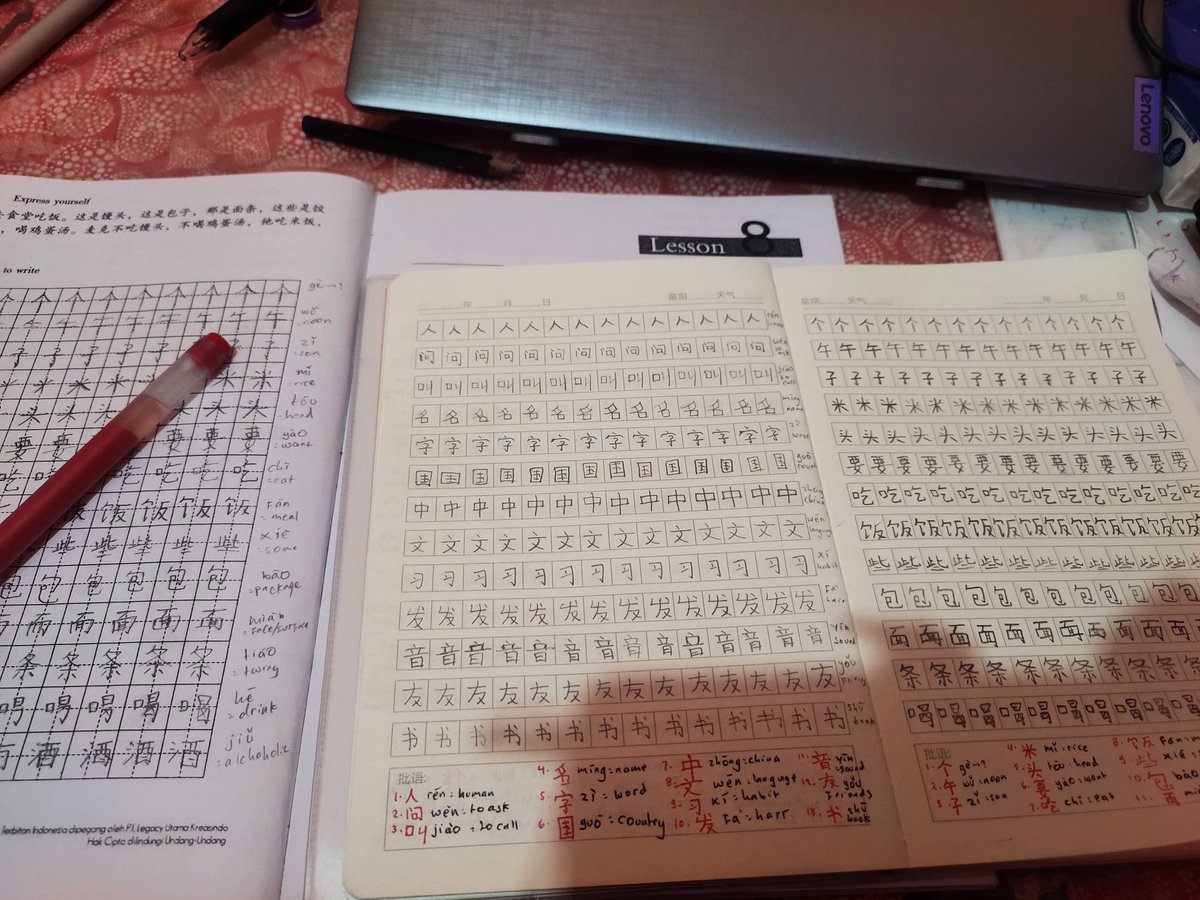 Express yourself
食堂吃饭。这是馒头，这是包子，那是面条，这些是饺
，喝鸡蛋汤。麦克不吃馒头，不喝鸡蛋汤，他吃米饭，
to write
个 个 个 个 个 个 个 个 个 gè
午 午 午 午 午 午 午 午 wǔ :noon
子 子 子 子 子 子 子 zǐ :son
米 米 米 米 米 米 米 mǐ :rice
头 头 头 头 头 头 头 tóu :head
要 要 要 要 要 要 yào =want
吃 吃 吃 吃 吃 吃 chī =eat
饭 饭 饭 饭 Fàn = meal
些 些 些 些 些 xiē
包 包 包 包 包 包 bāo =package
面 面 面 面 面 miàn =face/surface
条 条 条 条 条 tiáo
喝 喝 喝 喝 喝 hē = drink
酒 酒 酒 酒 jiǔ
Terbitan Indonesia dipegang oleh PT. Legacy Utama Kreasindo
Hak Cipta dilindungi Undang-Undang
Lesson 8
Lenovo
年 月 日 星期 天气
人 人 人 人 人 人 人 人 人 人 人 人 人 rén
问 问 问 问 问 问 问 问 问 问 问 问 问 wèn to ask
叫 叫 叫 叫 叫 叫 叫 叫 叫 叫 叫 叫 叫 jiào to call
名 名 名 名 名 名 名 名 名 名 名 名 名 míng name
字 字 字 字 字 字 字 字 字 字 字 字 字 zì
国 国 国 国 国 国 国 国 国 国 国 国 国 guó
中 中 中 中 中 中 中 中 中 中 中 中 中 中 zhōng china
文 文 文 文 文 文 文 文 文 文 文 文 文 wén
习 习 习 习 习 习 习 习 习 习 习 习 习 xí habit
发 发 发 发 发 发 发 发 发 发 发 发 发 Fà
音 音 音 音 音 音 音 音 音 音 音 音 音 yīn sound
友 友 友 友 友 友 友 友 友 友 友 友 友 yǒu
书 书 书 书 书 书 书 书 书 书 书 书 书 shū book
批语:
1. 人 rén: human
2. 问 wèn: to ask
3. 叫 jiào = to call
4. 名 míng: name
5. 字 zì : word
6. 国 guó : country
7. 中 zhōng: china
8. 文 wén
9. 习 xí : habit
10. 发 Fà
11. 音 yīn sound
12. 友 yǒu Friends
13. 书 shū book
星期 天气 年 月 日
个 个 个 个 个 个 个 个 个 个 个 个 个 个
午 午 午 午 午 午 午 午 午 午 午 午 午 午
子 子 子 子 子 子 子 子 子 子 子 子 子 子
米 米 米 米 米 米 米 米 米 米 米 米 米 米
头 头 头 头 头 头 头 头 头 头 头 头 头 头
要 要 要 要 要 要 要 要 要 要 要 要 要 要
吃 吃 吃 吃 吃 吃 吃 吃 吃 吃 吃 吃 吃
饭 饭 饭 饭 饭 饭 饭 饭 饭 饭 饭 饭 饭
些 些 些 些 些 些 些 些 些 些 些 些 些
包 包 包 包 包 包 包 包 包 包 包 包
面 面 面 面 面 面 面 面 面 面 面 面
条 条 条 条 条 条 条 条 条 条 条
喝 喝 喝 喝 喝 喝 喝 喝 喝 喝 喝
批语:
1. 个 gè
2. 午 wǔ : noon
3. 子 zǐ : son
4. 米 mǐ : rice
5. 头 tóu : head
6. 要 yào : want
7. 吃 chī : eat
8. 饭 Fàn
9. 些 xiē
10. 包 bāo
11. 面